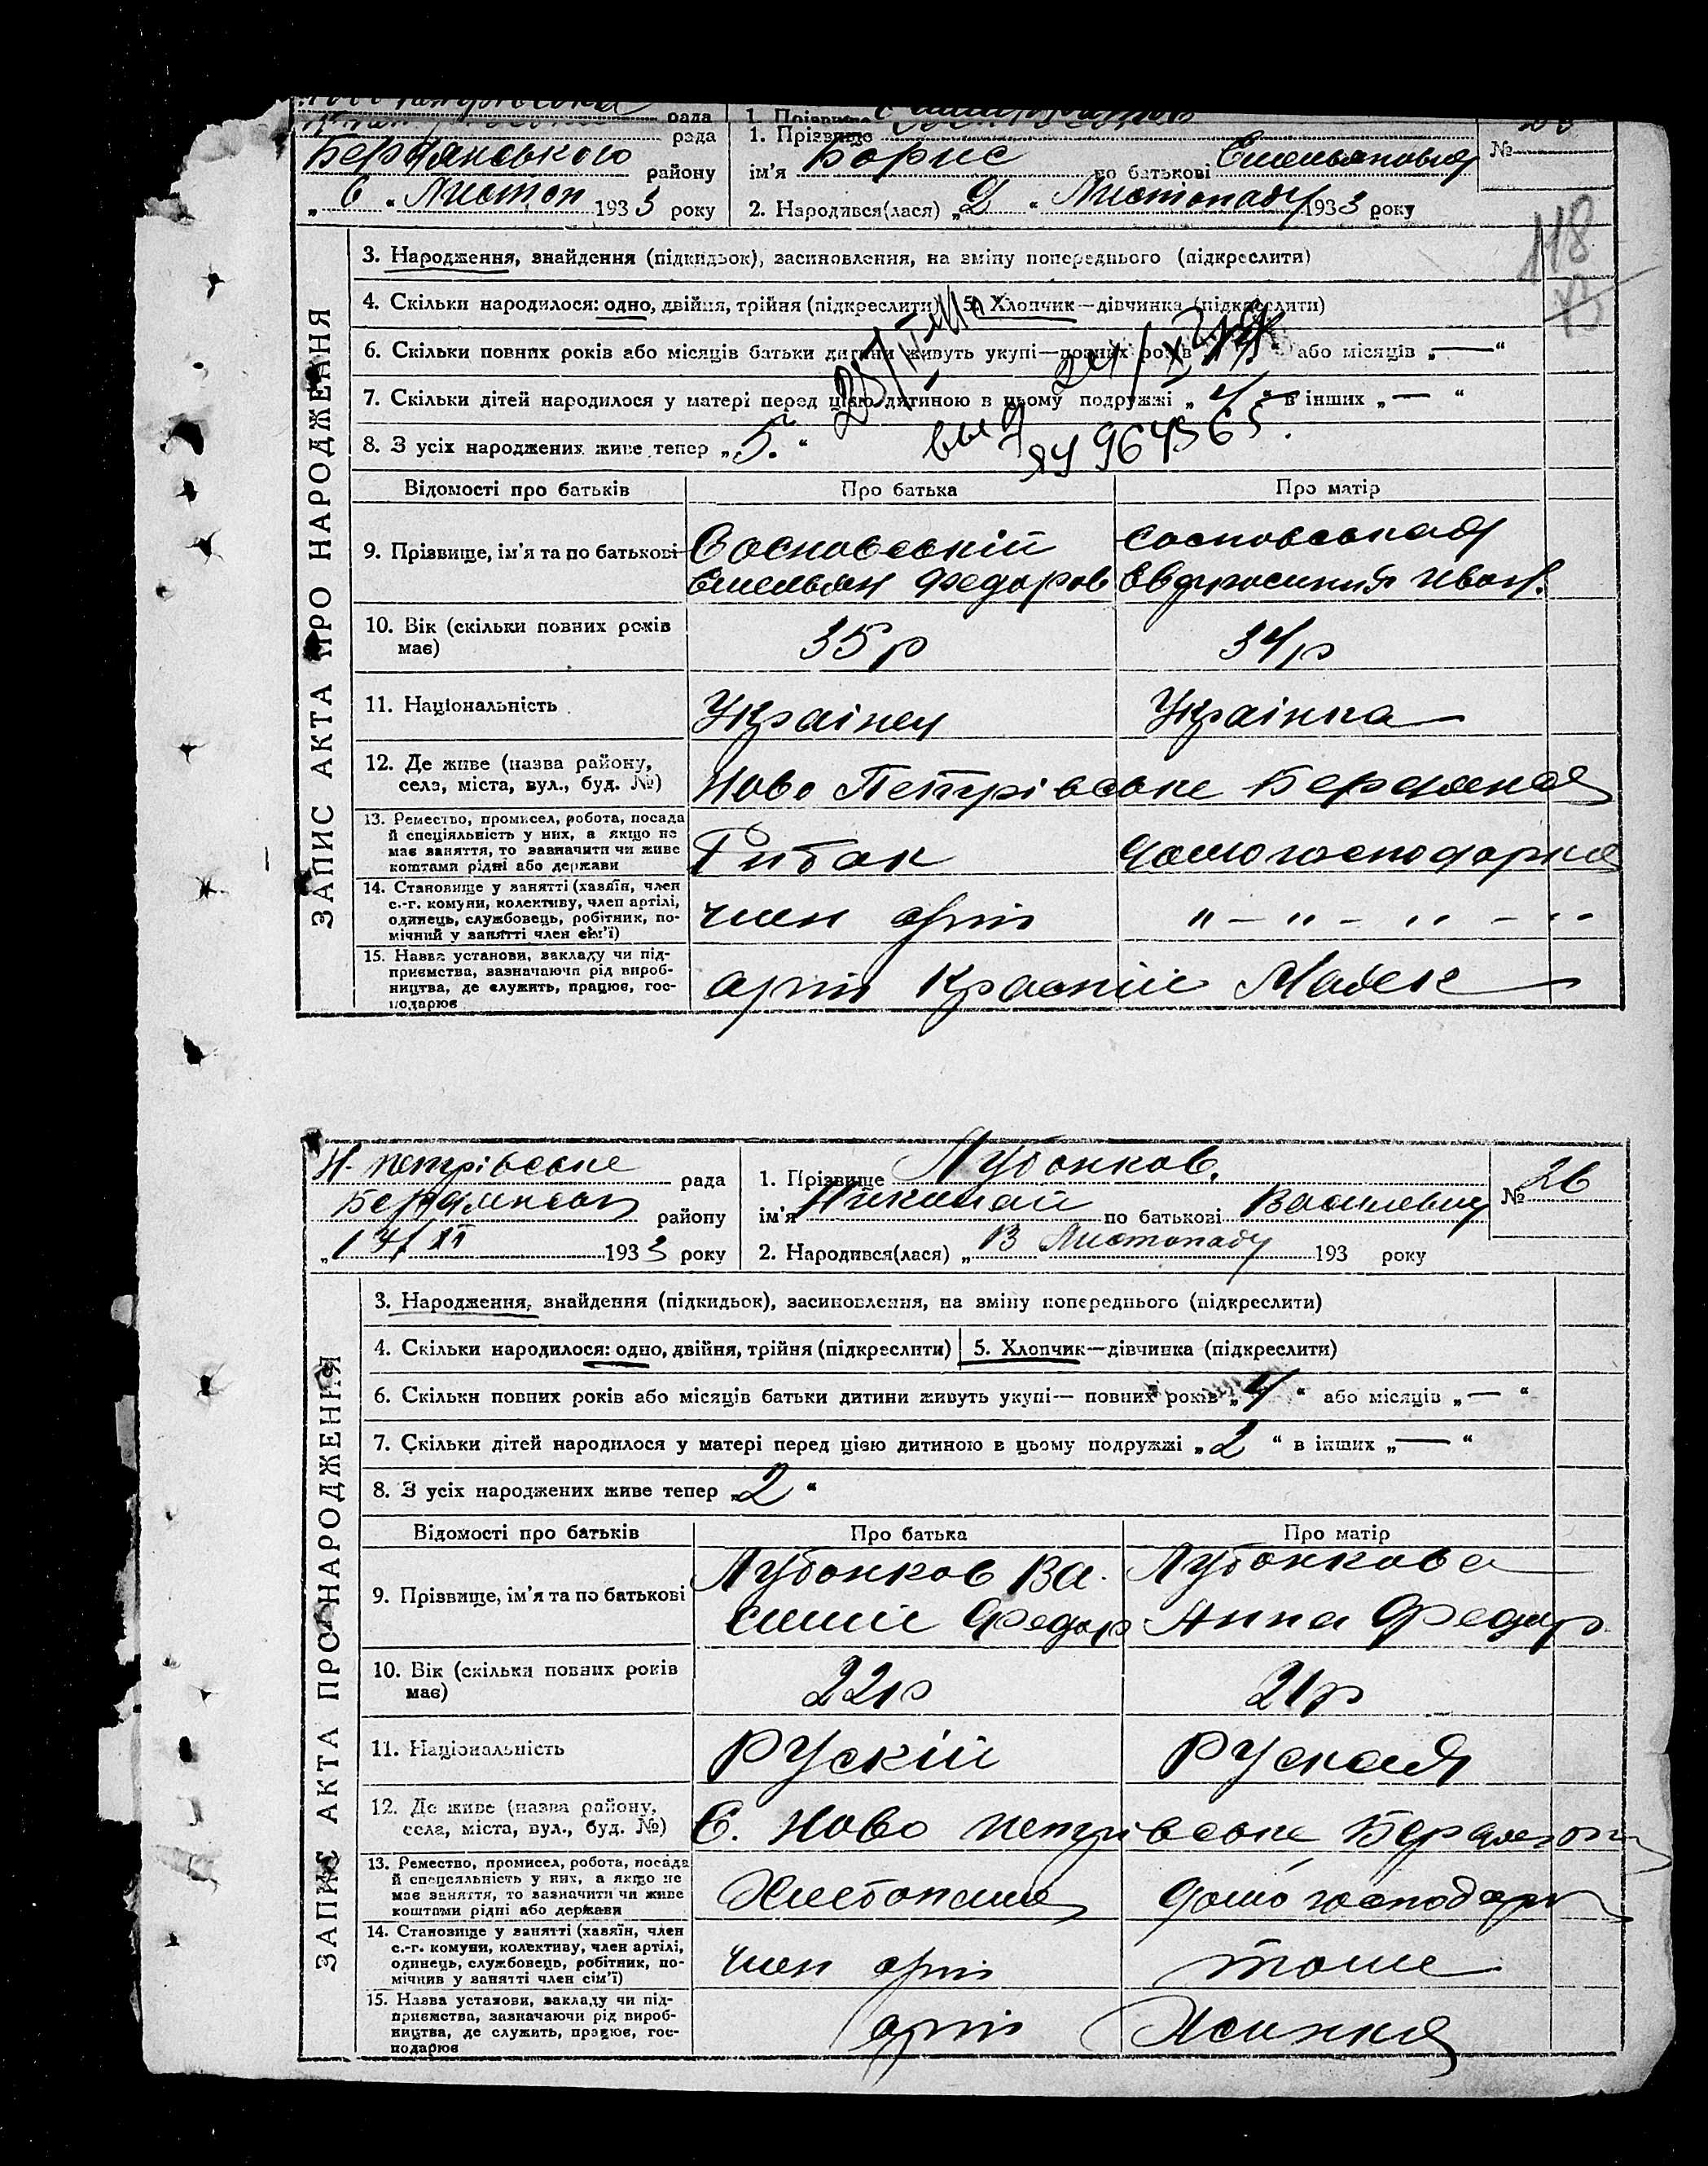 рада
1. Прізвище
рада
1. Прізвище
Бердянського району
ім'я Борис по батькові Емельянович
№
„6“ Листоп 1933 року
2. Народився(лася) „2“ Листопаду 1933 року
118
ЗАПИС АКТА ПРО НАРОДЖЕННЯ
3. Народження, знайдення (підкидьок), засиновлення, на зміну попереднього (підкреслити)
4. Скільки народилося: одно, двійня, трійня (підкреслити)
5. Хлопчик—дівчинка (підкреслити)
6. Скільки повних років або місяців батьки дитини живуть укупі—повних років або місяців „—“
7. Скільки дітей народилося у матері перед цією дитиною в цьому подружжі „4“ в інших „—“
8. З усіх народжених живе тепер „5“
Відомості про батьків
Про батька
Про матір
9. Прізвище, ім'я та по батькові
Сосновський
Емельян Федоров
Сосновськая
Ефросиния Иван.
10. Вік (скільки повних років
має)
35 р
34 р
11. Національність
Украінец
Украінка
12. Де живе (назва району,
села, міста, вул., буд. №)
Ново Петрівське Бердянск
13. Ремество, промисел, робота, посада
й спеціяльність у них, а якщо не
має заняття, то зазначити чи живе
коштами рідні або держави
Рибак
домогосподарка
14. Становище у занятті (хазяїн, член
с.-г. комуни, колективу, член артілі,
одинець, службовець, робітник, по-
мічний у занятті член сім'ї)
член арт
„ — „ — „ — „
15. Назва установи, закладу чи під-
приємства, зазначаючи рід вироб-
ництва, де служить, працює, гос-
подарює
арт Красний Маяк
Н-петрівське рада
1. Прізвище Лубонков.
№ 26
Бердянськ району
ім'я Николай по батькові Васильевич
„14/XI 1933 року
2. Народився(лася) „13 Листопаду 193 року
ЗАПИС АКТА ПРО НАРОДЖЕННЯ
3. Народження, знайдення (підкидьок), засиновлення, на зміну попереднього (підкреслити)
4. Скільки народилося: одно, двійня, трійня (підкреслити)
5. Хлопчик—дівчинка (підкреслити)
6. Скільки повних років або місяців батьки дитини живуть укупі— повних років „4“ або місяців „—“
7. Скільки дітей народилося у матері перед цією дитиною в цьому подружжі „2“ в інших „—“
8. З усіх народжених живе тепер „2“
Відомості про батьків
Про батька
Про матір
9. Прізвище, ім'я та по батькові
Лубонков Ва-
силий Федор
Лубонкова
Анна Федор
10. Вік (скільки повних років
має)
22 р
21 р
11. Національність
Рускій
Руская
12. Де живе (назва району,
села, міста, вул., буд. №)
С. Ново петрівське Бердянськ
13. Ремество, промисел, робота, посада
й спецсяльність у них, а якщо не
має заняття, то зазначити чи живе
коштами рідні або держави
Хлебопашец
домогосподарк
14. Становище у занятті (хазяїн, член
с.-г. комуни, колективу, член артілі,
одинець, службовець, робітник, по-
мічнив у занятті член сім'ї)
член арт
тоже
15. Назва установи, закладу чи під-
приємства, зазначаючи рід вироб-
ництва, де служить, працює, гос-
подарює
арт